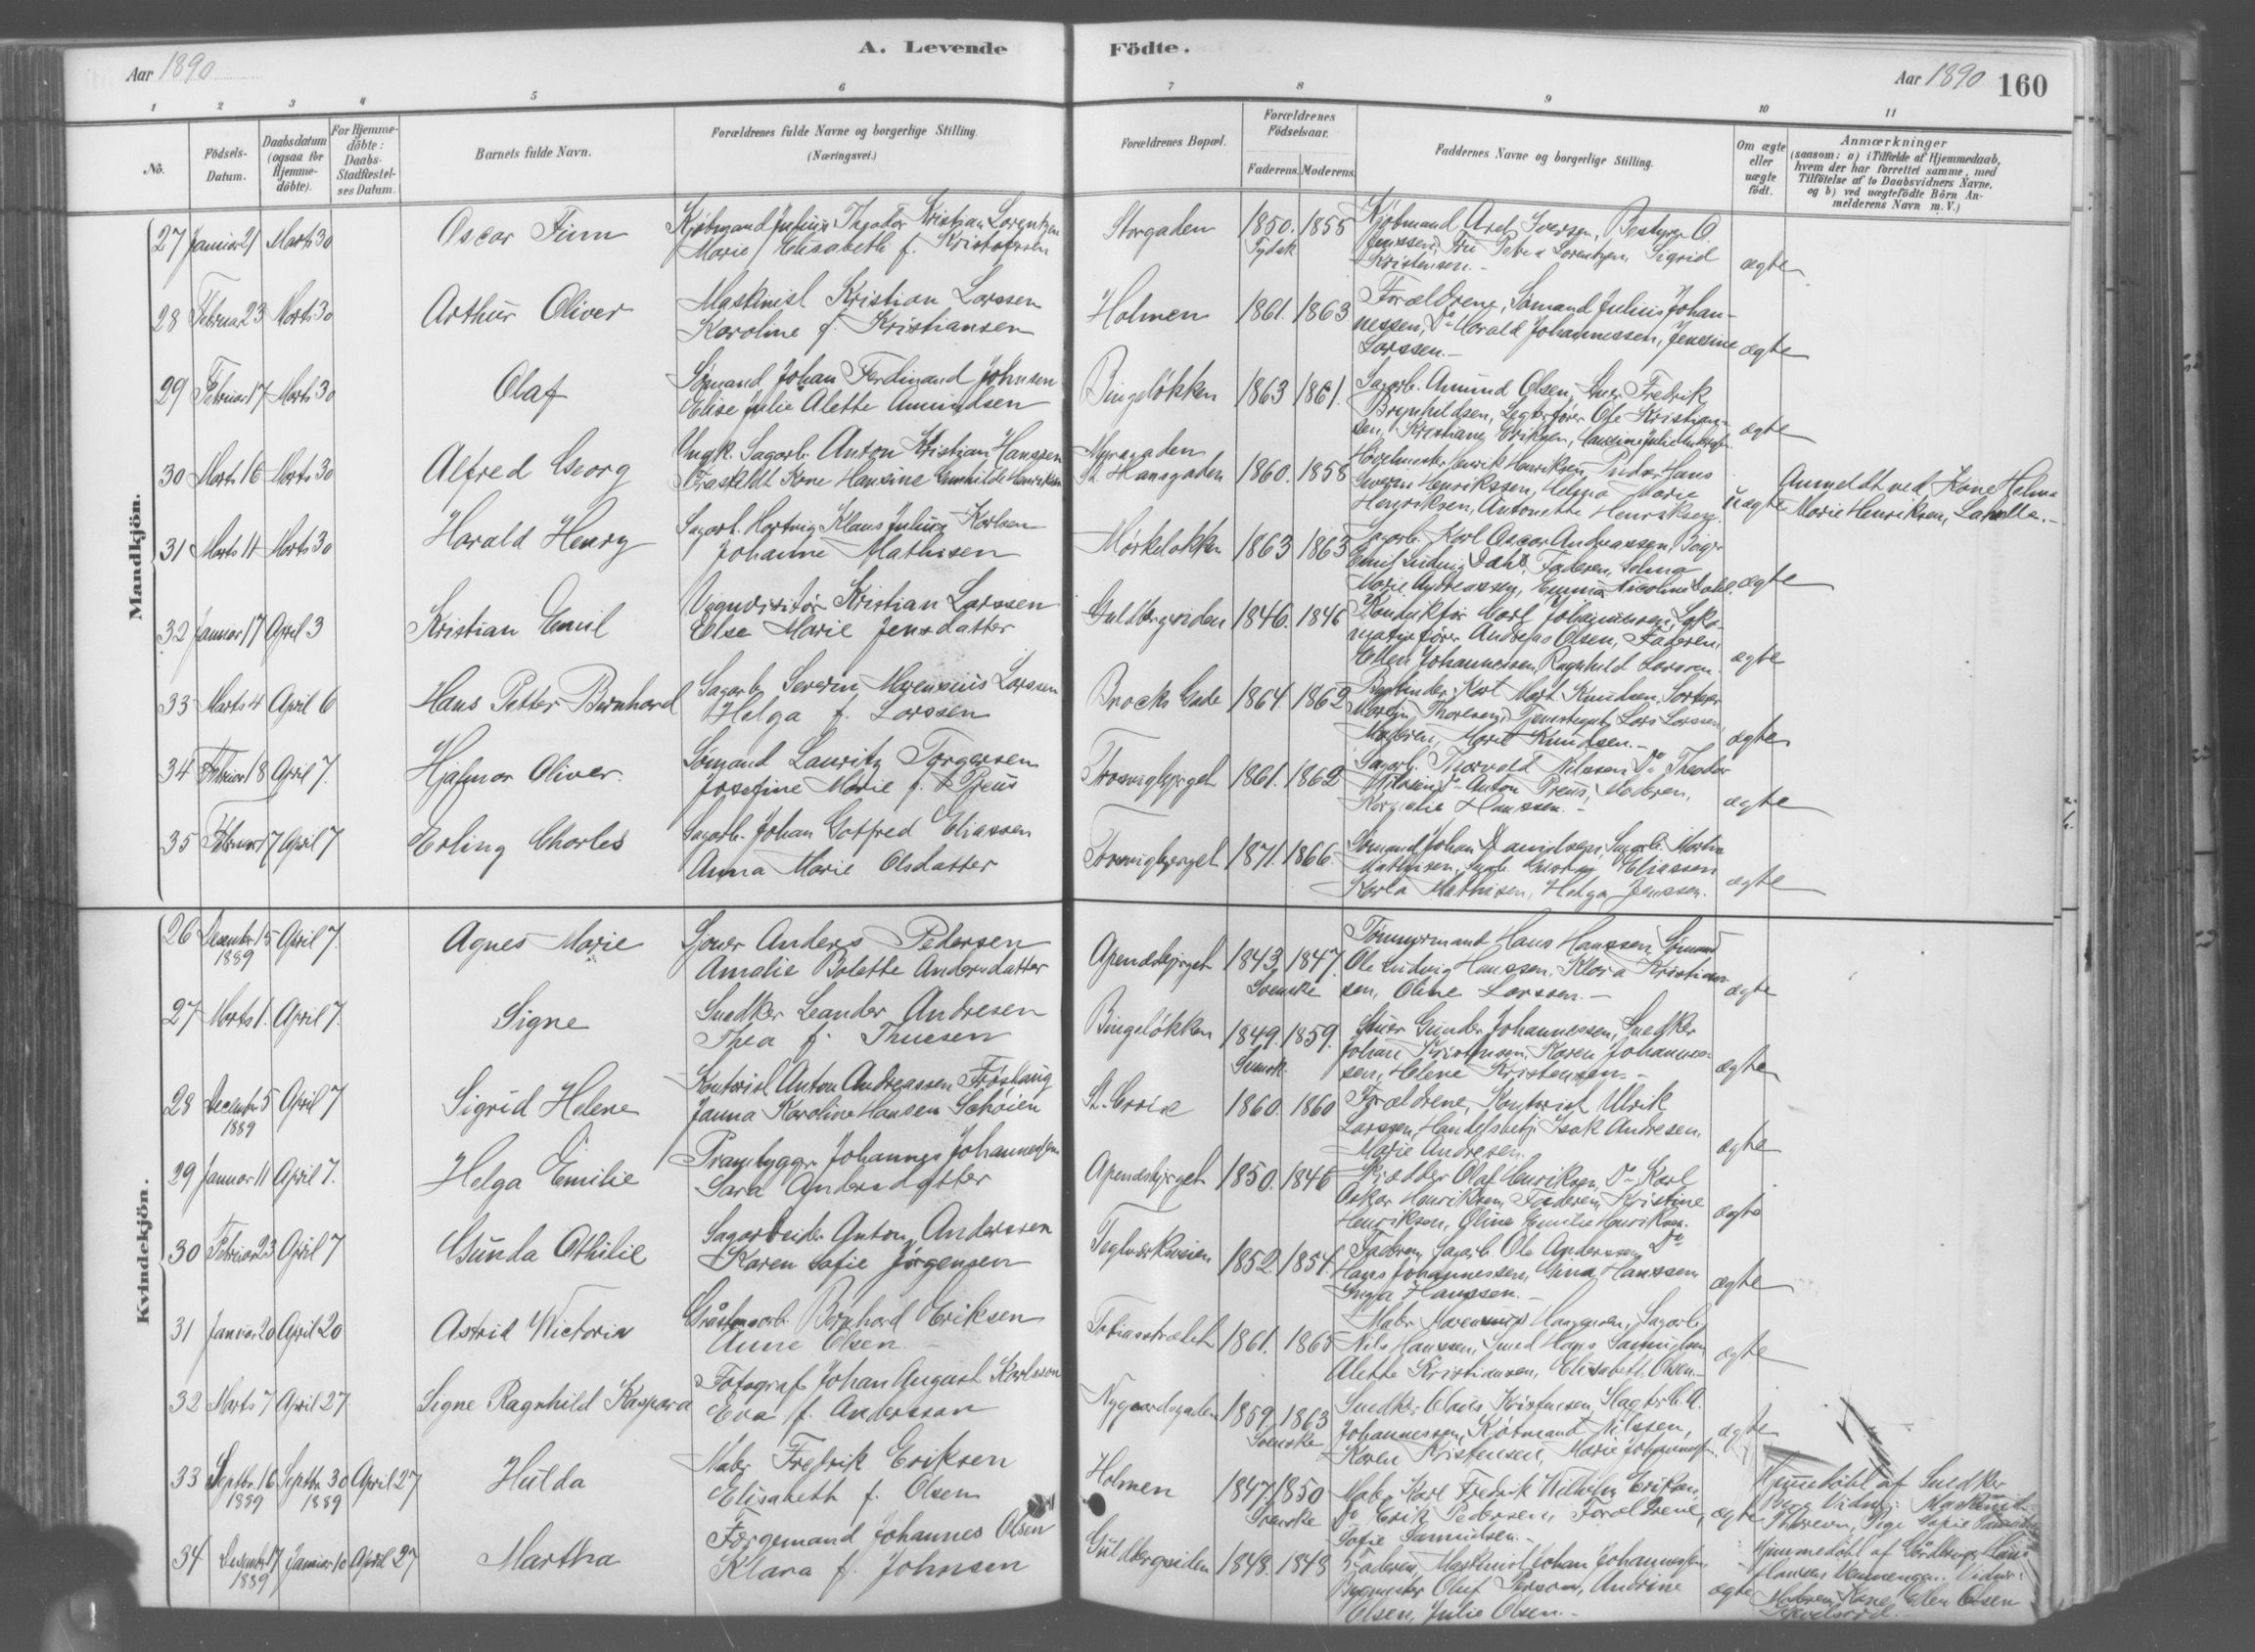 A. Levende
Födte.
Aar 1890
Aar 1890 160
1 2 3 4 5 6 7 8 9 10 11
No.
Födsels-Datum.
Daabsdatum (ogsaa for Hjemmedöbte).
For Hjemmedöbte: Daabs-Stadfæstelses Datum.
Barnets fulde Navn.
Forældrenes fulde Navne og borgerlige Stilling. (Næringsvei.)
Forældrenes Bopæl.
Forældrenes Födselsaar.
Faderens. Moderens.
Faddernes Navne og borgerlige Stilling.
Om ægte eller uægte födt.
Anmærkninger
(saasom: a) i Tilfælde af Hjemmedaab,
hvem der har forrettet samme, med
Tilföielse af to Daabsvidners Navne,
og b) ved uægtefödte Börn Anmelderens Navn m. V.)
Mandkjön.
27 Januar 21 Marts 30 Oscar Finn
Kjøbmand Julius Theodor Kristian Lorentzen
Marie Elisabeth f. Kristofersen
Storgaden 1850. 1855
Tydsk
Kjøbmand Axel Iversen, Bestyrer O.
Jenssen, Fru Petra Lorentzen, Sigrid
Kristensen.-
ægte
28 Februar 23 Marts 30 Arthur Oliver
Maskinist Kristian Larssen
Karoline f. Kristiansen
Holmen 1861. 1863
Forældrene, Sømand Julius Johan-
nessen, Do Harald Johannessen, Jensine
Larssen.-
ægte
29 Februar 17 Marts 30 Olaf
Sømand Johan Ferdinand Johnsen
Elise Julie Alette Amundsen
Bingeløkken 1863 1861.
Sagarb. Amund Olsen, Fredrik
Brynhildsen, Ole Kristian-
sen, Kristiane Eriksen,
ægte
30 Marts 16 Marts 30 Alfred Georg
Ungk. Sagarb. Anton Kristian Hanssen
Fraskildt Kone Hansine Gunhilde Henriksen
Myragaden
St. Hansgaden 1860. 1858
Henrik Henriksen, Hans
Henrikssen, Helma Marie
Henriksen, Antonette Henriksen.
uægte
Anmeldt ved Kone Helma
Marie Henriksen, Lahelle.-
31 Marts 11 Marts 30 Harald Henry
Sagarb. Hartvig Klaus Julius Karlsen
Johanne Mathisen
Mørkeløkken 1863 1863
Sagarb. Karl Oscar Andreassen,
Emil Ludvig Dahl, Faderen, Helma
Marie Andreassen, Emma Nicoline Dahl.
ægte
32 Januar 17 April 3 Kristian Emil
Vognvisitør Kristian Larssen
Else Marie Jensdatter
Guldbergsiden 1846. 1846
Konduktør Carl Johannessen, Loko-
motivfører Andreas Olsen, Faderen,
Ellen Johannesen, Ragnhild Larssen.
ægte
33 Marts 4 April 6 Hans Petter Bernhard
Sagarb. Severin Marensius Larssen
Helga f. Larssen
Brocks Gade 1864. 1862
Knudsen,
Martin Thoresen, Lars Larssen,
Moderen, Marie Knudsen.-
ægte
34 Februar 18 April 7. Hjalmar Oliver.
Sømand Lauritz Torgersen
Josefine Marie f. Preus
Trosvigbjerget 1861. 1862
Sagarb. Thorvald Nilssen, Do Theodor
Nilssen, Do Anton Preus, Moderen,
Hanssen.-
ægte
35 Februar 17 April 7 Erling Charles
Sagarb. Johan Gotfred Eliassen
Anna Marie Olsdatter
Trosvigbjerget 1871. 1866.
Sømand Johan Danielsen, Sagarb. Martin
Mathisen, Sagb. Gustav Eliassen
Karla Mathisen, Helga Jenssen.
ægte
Kvindekjön.
26 December 15 April 7. Agnes Marie
1889
Sjouer Anders Pedersen
Amalie Bolette Andersdatter
Apenesbjerget 1843, 1847.
Svenske
Tømmermand Hans Hanssen, Sømand
Ole Ludvig Hanssen, Klara Kristian-
sen, Oline Larssen.-
ægte
27 Marts 1. April 7. Signe
Snedker Leander Andresen
Thea f. Thuesen
Bingeløkken 1849. 1859.
Svensk.
Gunder Johannessen, Snedker
Johan Kristensen, Karen Johannes-
sen, Helene Kristensen.-
ægte
28 December 5 April 7 Sigrid Helene
1889
Kontorist Anton Andreassen Frøshaug
Janna Karoline Hansen Schøien
St. Croix 1860. 1860
Forældrene, Kontorist Ulrik
Larssen, Handelsbetj. Isak Andresen,
Marie Andresen.
ægte
29 Januar 11 April 7. Helga Emilie
Prambygger Johannes Johannessen
Sara Andersdatter
Apenesbjerget 1850. 1846
Olaf Henriksen, Do Karl
Oskar Henriksen, Faderen, Kristine
Henriksen, Oline Emilie Henriksen.
ægte
30 Februar 23 April 7 Gunda Othilie
Sagarbeider Anton Anderssen
Karen Sofie Jørgensen
Teglverksveien 1852. 1854.
Faderen, Sagarb. Ole Anderssen, Do
Hans Johannessen, Gina Hanssen
Inga Hanssen.-
ægte
31 Januar 20 April 20 Astrid Victoria
Bernhard Eriksen
Anne Olsen.-
Tobiasstrædet 1861. 1865
Marensius Hanssen, Sagarb.
Nils Hanssen, Smed Hans Samuelsen
Alette Kristiansen, Elisabeth Olsen.-
ægte
32 Marts 7 April 27. Signe Ragnhild Kaspara
Fotograf Johan August Karlsson
Eva f. Andersson
Nygaardsgaden 1859. 1863
Svenske
Snedker Olaus Kristensen,
Johannessen, Købmand Nilssen,
Karen Kristensen, Marie Johannessen.
ægte
33 Septbr. 16 Septbr. 30 April 27 Hulda
1889 1889
Fredrik Eriksen
Elisabeth f. Olsen
Holmen 1847. 1850
Svenske
Karl Fredrik Wilhelm Eriksen,
Do Erik Pedersen, Forældrene,
Sofie Samuelsen.-
ægte
Hjemmedøbt af Snedker
Berg. Vidner:
34 December 17 Januar 10 April 27 Martha
1889
Færgemand Johannes Olsen
Klara f. Johnsen
Guldbergsiden 1848. 1848
Faderen, Maskinist Johan Johannessen,
Oluf Persson, Andrine
Olsen, Julie Olsen.-
ægte
Hjemmedøbt af
Hansen Vidner:
Moderen, Kone Ellen Olsen